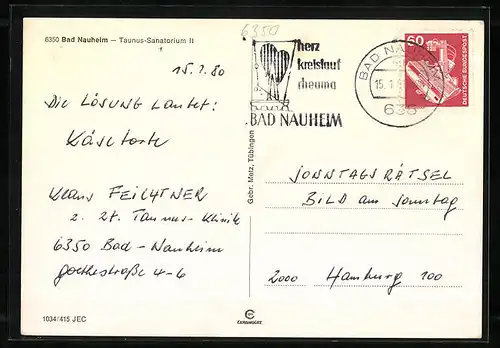 6350 Bad Nauheim — Taunus-Sanatorium II
6350
15.1.80
Die LÖSUNG lautet:
Käsetorte
Klaus FEICHTNER
z. Zt. Taunus-Klinik
6350 Bad-Nauheim
Goethestraße 4-6
1034/415 JEC
Gebr. Metz, Tübingen
herz
kreislauf
rheuma
BAD NAUHEIM
BAD NAUHEIM
15.1.8
635
60
DEUTSCHE BUNDESPOST
SONNTAGSRÄTSEL
BILD am Sonntag
2000 Hamburg 100